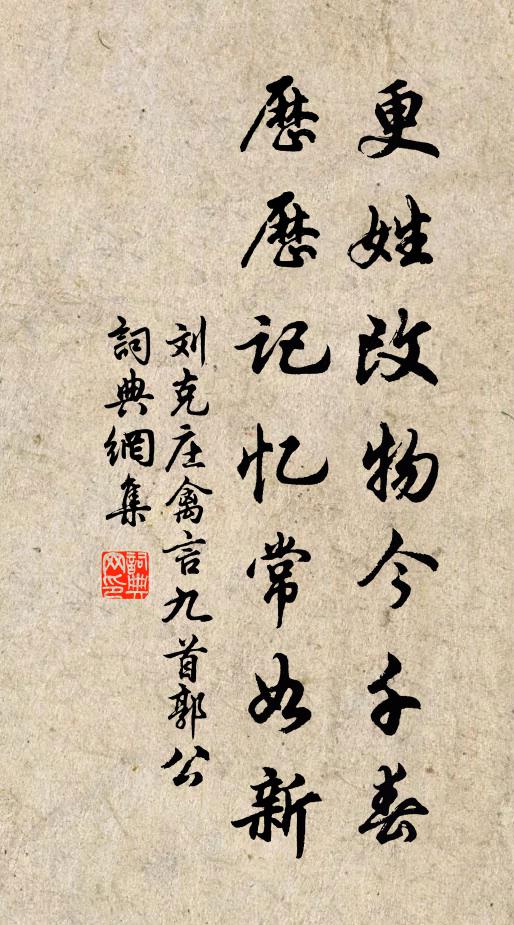 更姓改物今千春
歷歷记忆常如新
刘克庄禽言九首郭公
詞典網集
詞典网印